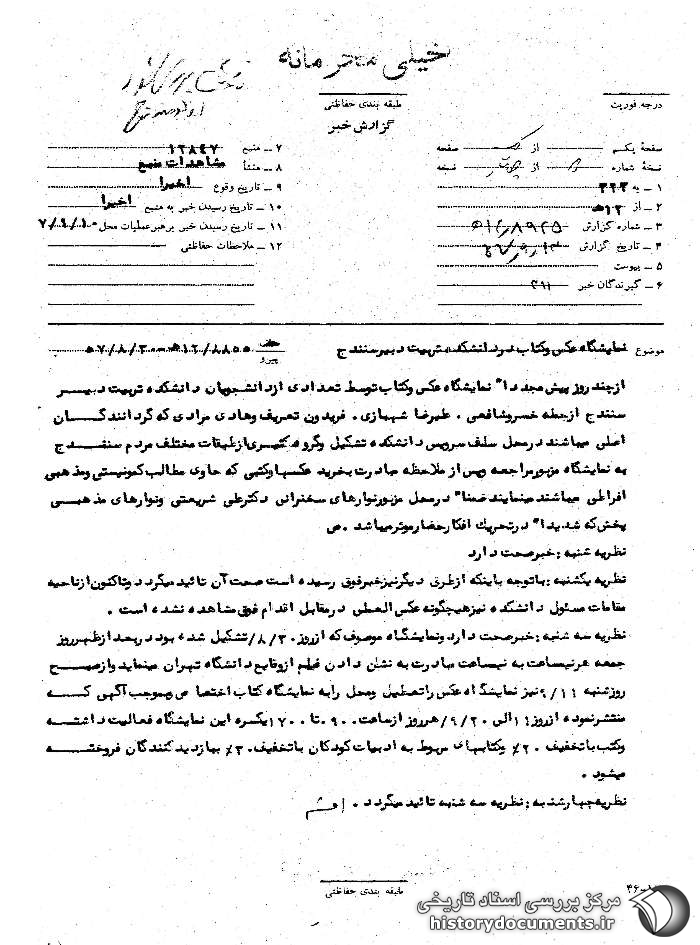 خیلی محرمانه
درجه فوریت
طبقه بندی حفاظتی
گزارش خبر
صفحه یکم از صفحه
نسخه شماره از نسخه
۱ ـ به ۳۲۳
۲ ـ از ۱۲ه
۳ ـ شماره گزارش
۴ ـ تاریخ گزارش
۵ ـ پیوست
۶ ـ گیرندگان خبر ۲۹۱
۷ ـ منبع ۱۲۸۴۷
۸ ـ منشأ مشاهدات منبع
۹ ـ تاریخ وقوع اخیرا
۱۰ ـ تاریخ رسیدن خبر به منبع اخیرا
۱۱ ـ تاریخ رسیدن خبر برهبر عملیات محل ۵۷/۹/۱۰
۱۲ ـ ملاحظات حفاظتی
موضوع نمایشگاه عکس وکتاب در دانشکده تربیت دبیر سنندج
عطف
پیرو ۸۸۵۵/۱۲ه‍ ـ ۵۷/۸/۳۰
از چند روز پیش مجددا" نمایشگاه عکس وکتاب توسط تعدادی از دانشجویان دانشکده تربیت دبیر
سنندج ازجمله خسرو شافعی ، علیرضا شهبازی ، فریدون تعریف وهادی مرادی که گردانندگان
اصلی میباشند درمحل سلف سرویس دانشکده تشکیل وگروه کثیری ازطبقات مختلف مردم سنندج
به نمایشگاه مزبور مراجعه وپس از ملاحظه مبادرت بخرید عکسها وکتبی که حاوی مطالب کمونیستی ومذهبی
افراطی میباشند مینمایند ضمنا" درمحل مزبور نوارهای سخنرانی دکترعلی شریعتی ونوارهای مذهبی
پخش که شدیدا" در تحریک افکار حضار موثر میباشد . ص
نظریه شنبه : خبر صحت دارد
نظریه یکشنبه : باتوجه باینکه ازطرق دیگر نیز خبر فوق رسیده است صحت آن تائید میگردد وتاکنون از ناحیه
مقامات مسئول دانشکده نیز هیچگونه عکس العملی در مقابل اقدام فوق مشاهده نشده است .
نظریه سه شنبه : خبر صحت دارد ونمایشگاه موصوف که از روز ۸/۳۰ تشکیل شده بود در بعد از ظهر روز
جمعه هر نیساعت به نیساعت مبادرت به نشان دادن فیلم از وقایع دانشگاه تهران مینماید واز صبح
روز شنبه ۹/۱۱ نیز نمایشگاه عکس را تعطیل ومحل را به نمایشگاه کتاب اختصاص بموجب آگهی که
منتشر نموده از روز ۱۱ الی ۹/۲۰ هر روز از ساعت ۰۹۰۰ تا ۱۷۰۰ یکسره این نمایشگاه فعالیت داشته
وکتب با تخفیف ۲۰٪ وکتابهای مربوط به ادبیات کودکان با تخفیف ۳۰٪ به بازدید کنندگان فروخته
میشود .
نظریه چهارشنبه : نظریه سه شنبه تائید میگردد .
طبقه بندی حفاظتی
مرکز بررسی اسناد تاریخی
historydocuments.ir